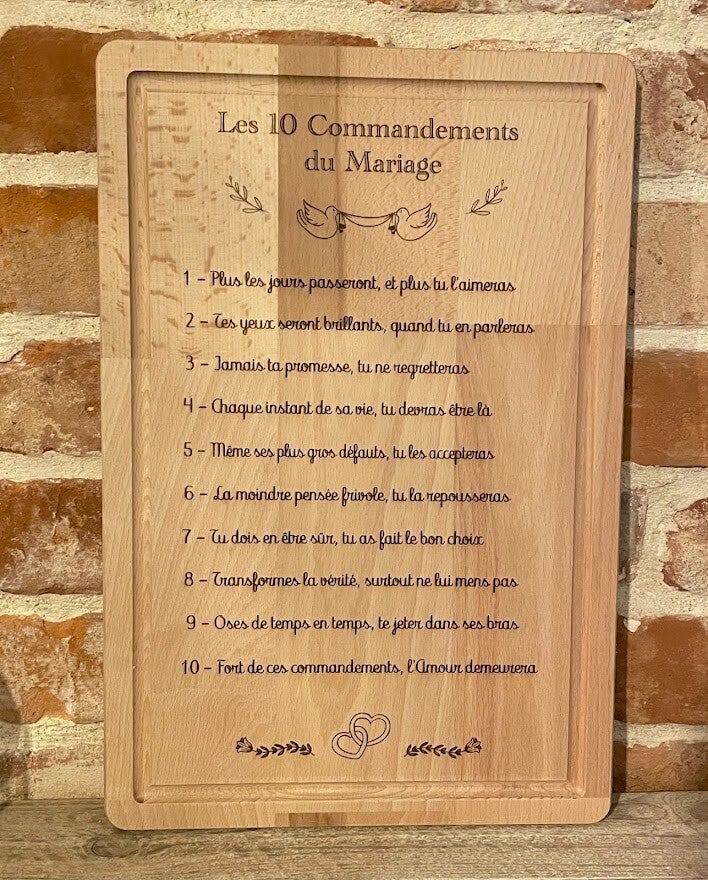 Les 10 Commandements
du Mariage
1 - Plus les jours passeront, et plus tu l'aimeras
2 - Tes yeux seront brillants, quand tu en parleras
3 - Jamais ta promesse, tu ne regretteras
4 - Chaque instant de sa vie, tu devras être là
5 - Même ses plus gros défauts, tu les accepteras
6 - La moindre pensée frivole, tu la repousseras
7 - Tu dois en être sûr, tu as fait le bon choix
8 - Transformes la vérité, surtout ne lui mens pas
9 - Oses de temps en temps, te jeter dans ses bras
10 - Fort de ces commandements, l'Amour demeurera